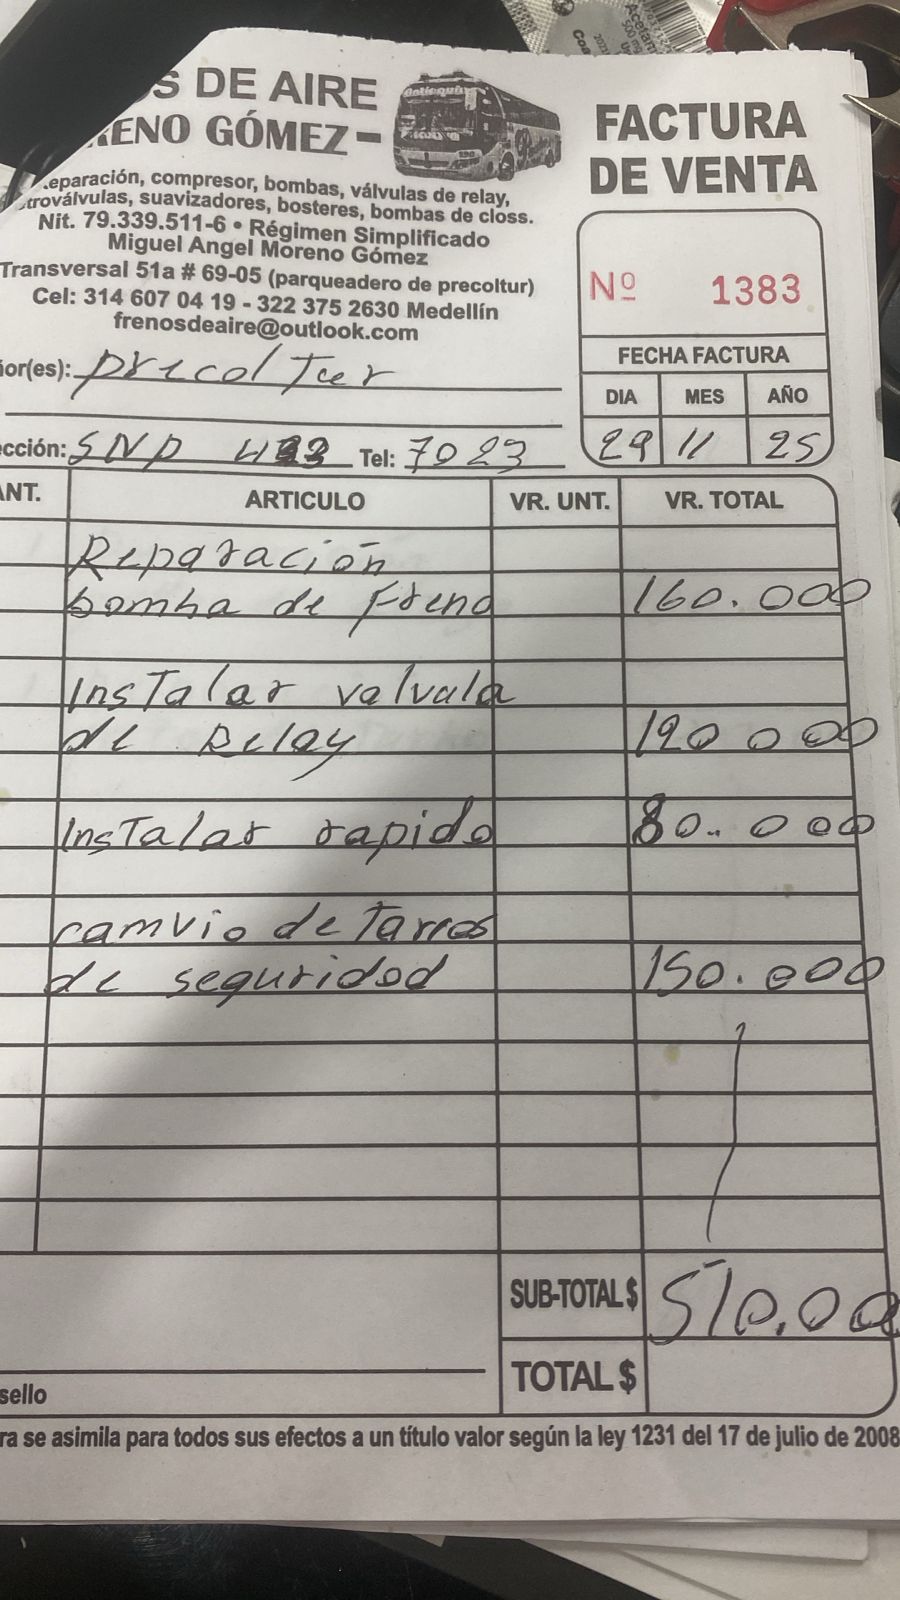 S DE AIRE
RENO GÓMEZ-
FACTURA
DE VENTA
eparación, compresor, bombas, válvulas de relay,
troválvulas, suavizadores, bosteres, bombas de closs.
Nit. 79.339.511-6 • Régimen Simplificado
Miguel Angel Moreno Gómez
Transversal 51a # 69-05 (parqueadero de precoltur)
Cel: 314 607 04 19 - 322 375 2630 Medellín
frenosdeaire@outlook.com
Nº 1383
FECHA FACTURA
DIA MES AÑO
29 11 25
ñor(es): precolTur
ección: SNP Tel: 7023
ANT. ARTICULO VR. UNT. VR. TOTAL
Reparación
bomba de Freno 160.000
InsTalar valvula
de Relay 120 000
InsTalar rapido 80.000
camvio de Tarros
de seguridad 150.000
SUB-TOTAL $ 510.00
TOTAL $
sello
ra se asimila para todos sus efectos a un título valor según la ley 1231 del 17 de julio de 2008